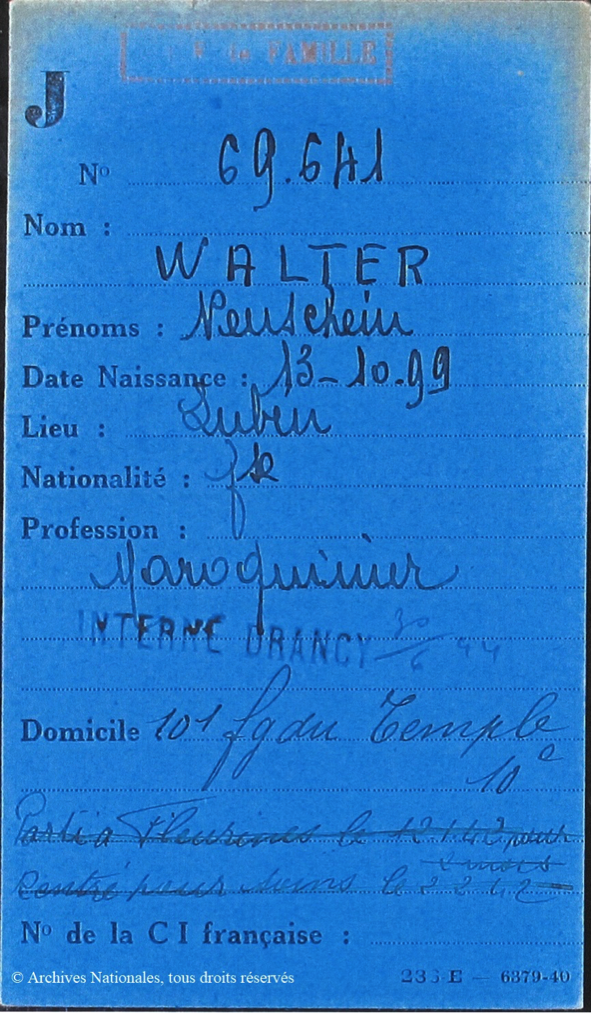 de FAMILLE
J
Nº 69.641
Nom :
WALTER
Prénoms : Neuschein
Date Naissance : 13-10.99
Lieu : Lubin
Nationalité :
Profession :
Maroquinier
INTERNÉ DRANCY 30/6 44
Domicile : 101 fg du Temple
10e
Parti à Fleurines le pour
2 mois
Rentré pour soins le
Nº de la C I française :
© Archives Nationales, tous droits réservés
6379-40